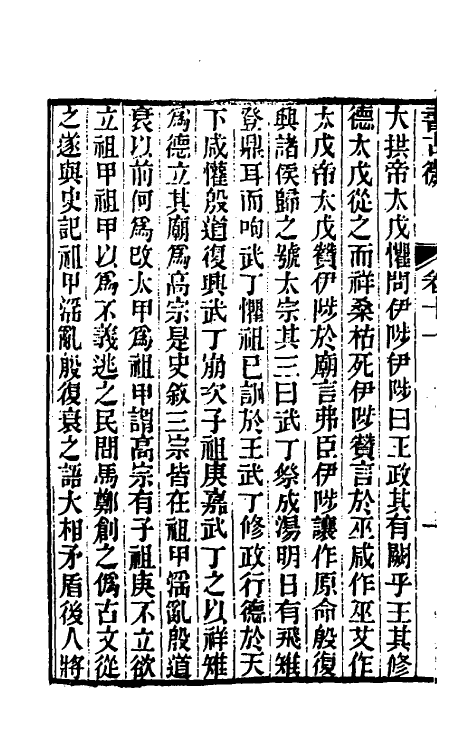 書古微 卷十一 一
大拱帝太戊懼問伊陟伊陟曰王政其有闕乎王其修
德太戊從之而祥桑枯死伊陟贊言於巫咸作巫艾作
太戊帝太戊贊伊陟於廟言弗臣伊陟讓作原命殷復
興諸侯歸之號太宗其三曰武丁祭成湯明日有飛雉
登鼎耳而呴武丁懼祖已訓於王武丁修政行德於天
下咸懽殷道復興武丁崩次子祖庚嘉武丁之以祥雉
爲德立其廟爲高宗是史敘三宗皆在祖甲淫亂殷道
衰以前何爲改太甲爲祖甲謂高宗有子祖庚不立欲
立祖甲祖甲以爲不義逃之民間馬鄭創之僞古文從
之遂與史記祖甲淫亂殷復衰之語大相矛盾後人將